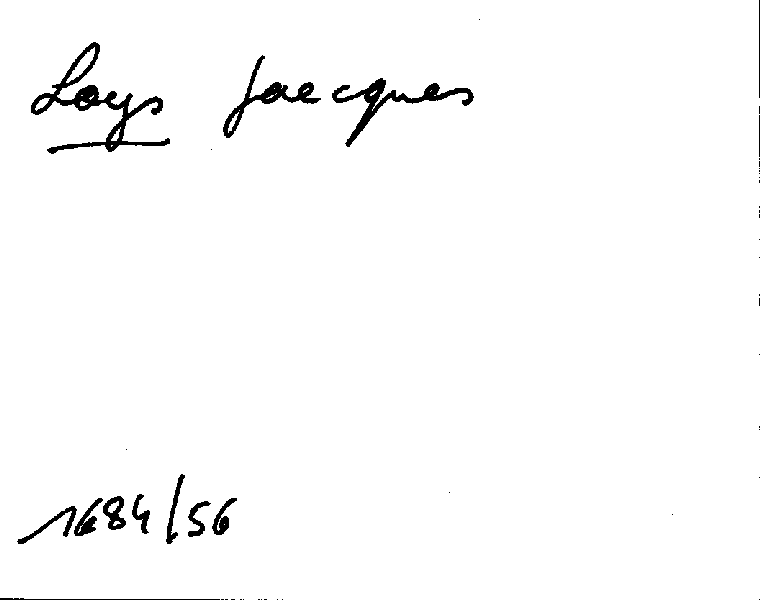 Loys Jaecques
1684/56